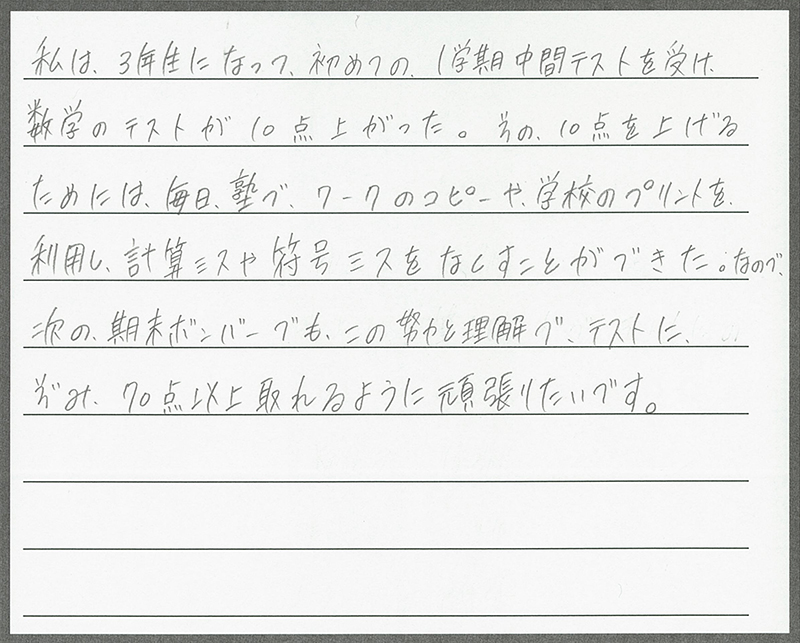 私は、3年生になって、初めての、1学期中間テストを受け、
数学のテストが10点上がった。その、10点を上げる
ためには、毎日、塾で、ワークのコピーや、学校のプリントを、
利用し、計算ミスや符号ミスをなくすことができた。なので、
次の、期末ボンバーでも、この努力と理解で、テストに、
ぞみ、70点以上取れるように頑張りたいです。